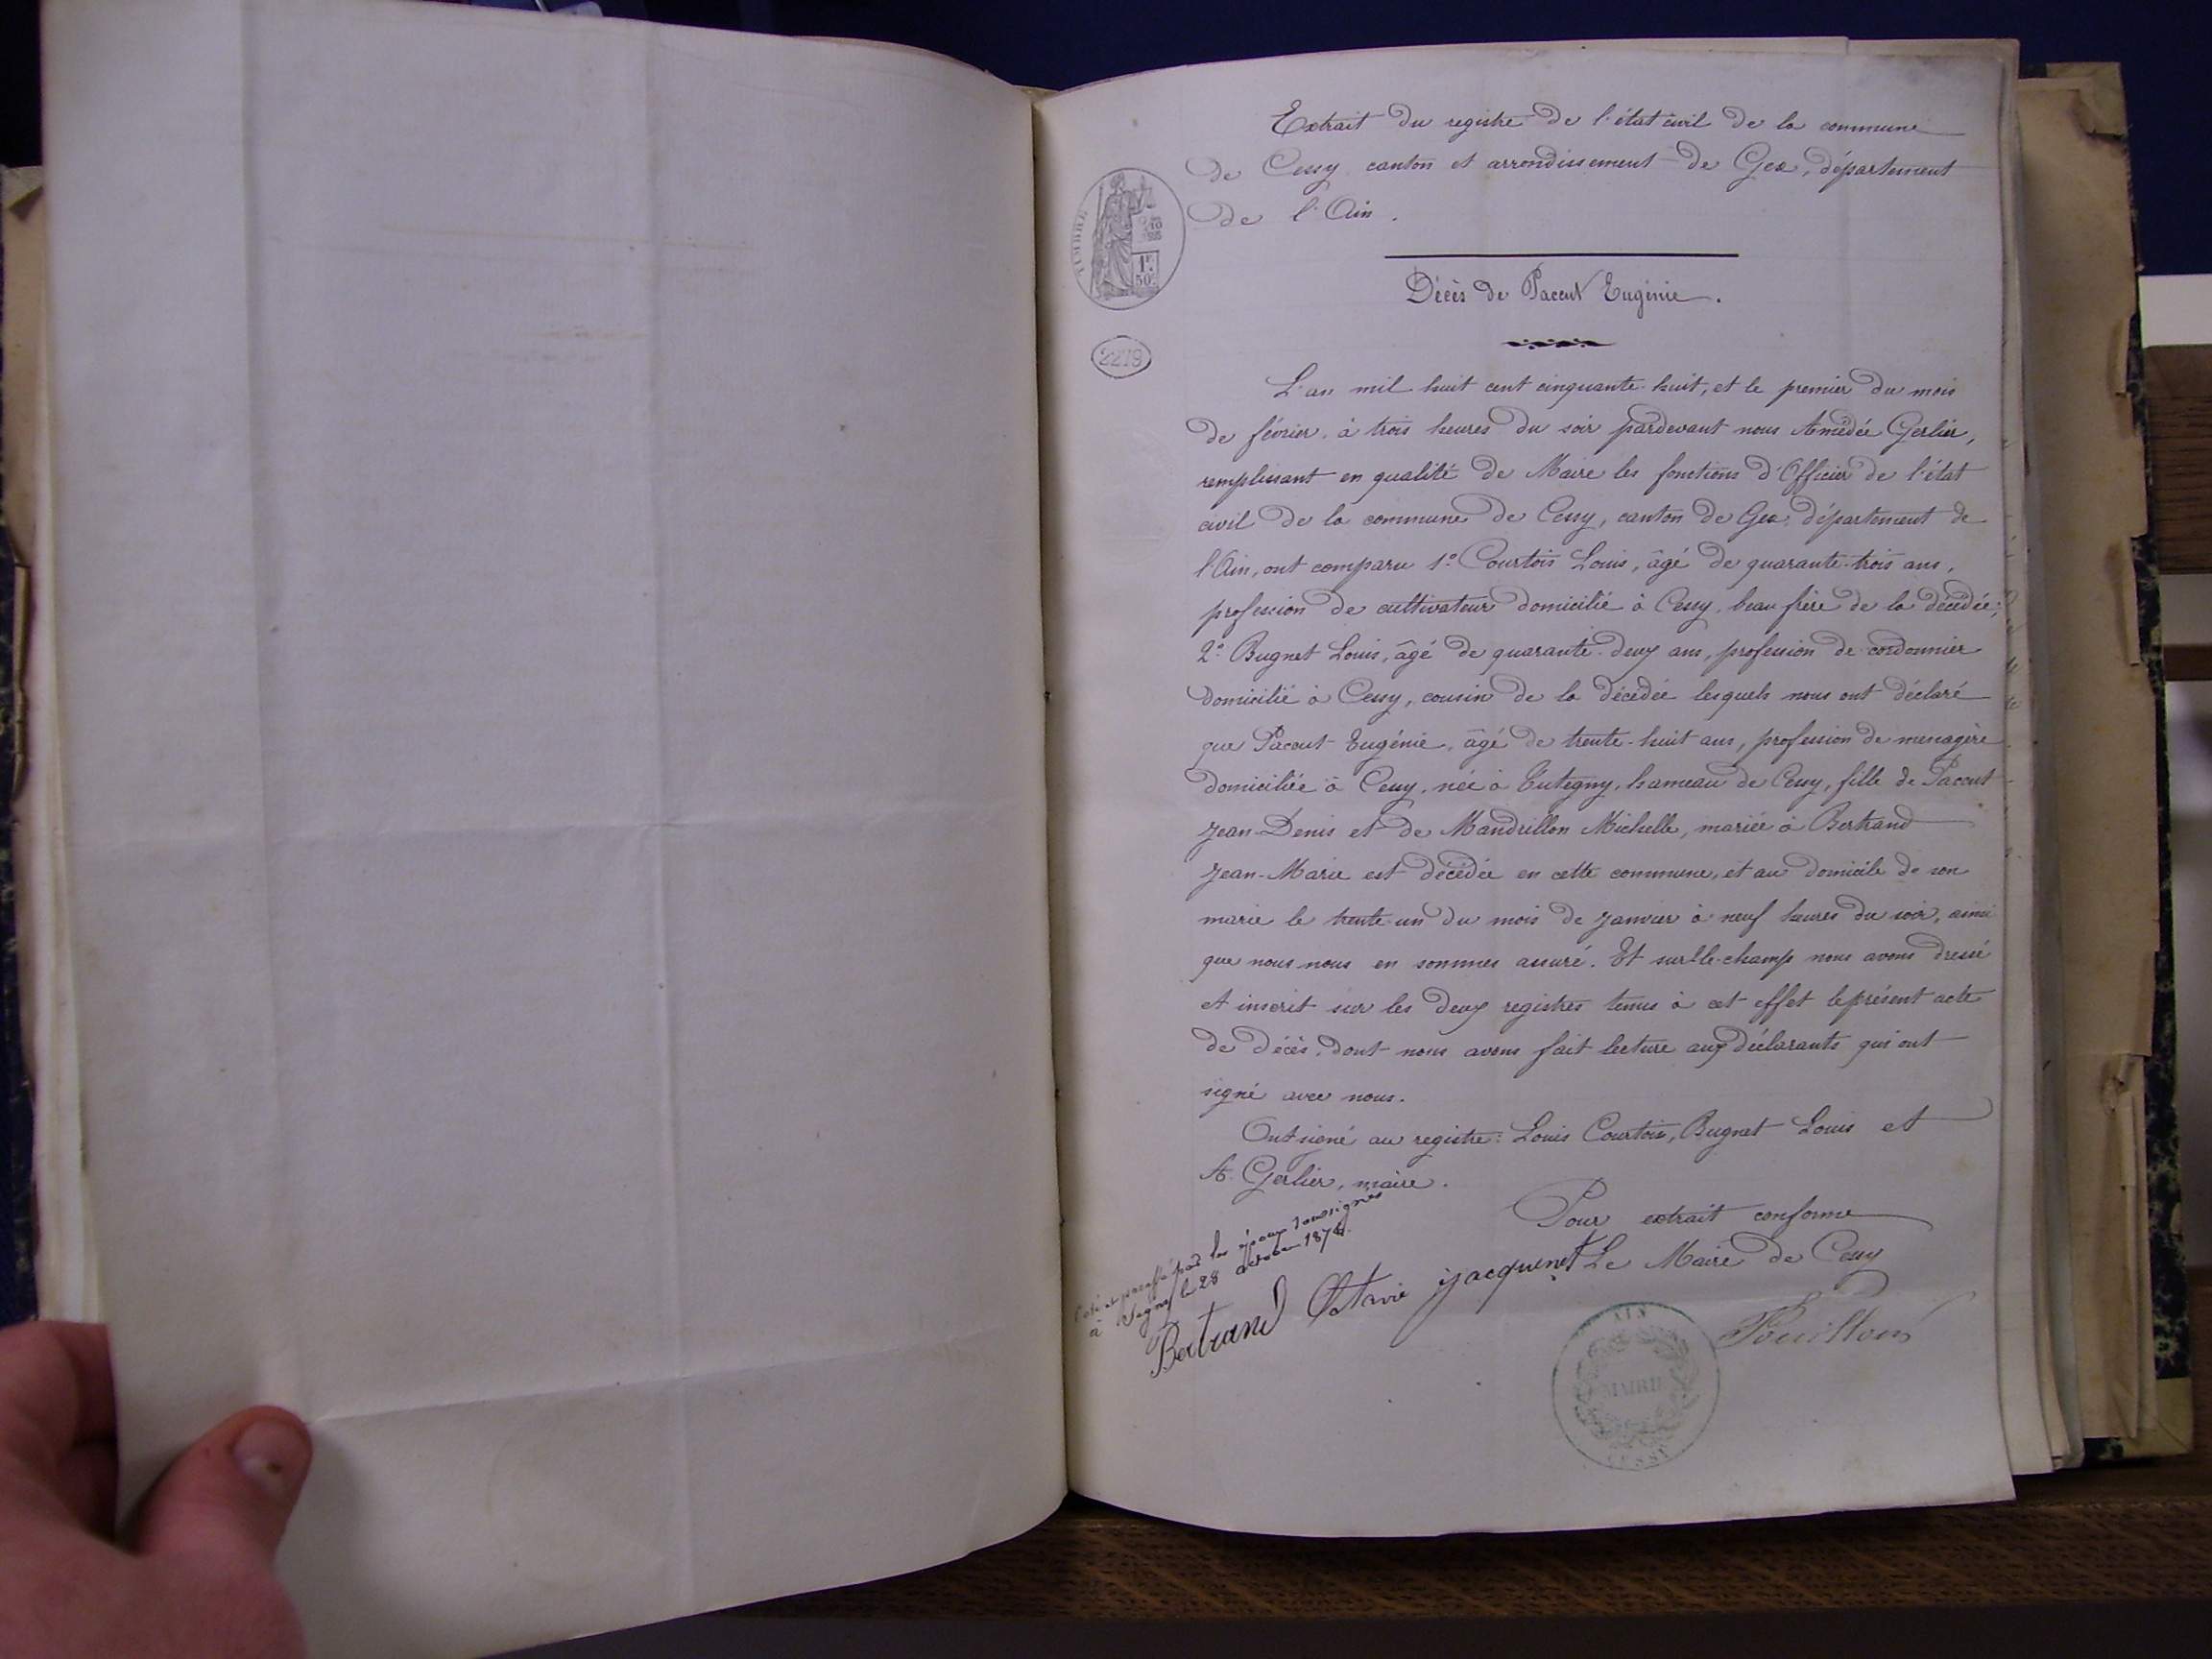 Extrait du registre de l'état civil de la commune
de Cessy canton et arrondissement de Gex, département
de l'Ain.
TIMBRE
10
1F.
50c
Décès de Pacout Eugénie.
2279
L'an mil huit cent cinquante-huit, et le premier du mois
de février, à trois heures du soir pardevant nous Amédée Gerlier,
remplissant en qualité de Maire les fonctions d'Officier de l'état
civil de la commune de Cessy, canton de Gex, département de
l'Ain, ont comparu 1° Courtois Louis, âgé de quarante-trois ans,
profession de cultivateur domicilié à Cessy, beau frère de la décédée;
2° Bugnet Louis, âgé de quarante-deux ans, profession de cordonnier
domicilié à Cessy, cousin de la décédée lesquels nous ont déclaré
que Pacout Eugénie, âgé de trente-huit ans, profession de menagère
domiciliée à Cessy, née à Tutegny, hameau de Cessy, fille de Pacout
Jean-Denis et de Mandrillon Michelle, mariée à Bertrand
Jean-Marie est décédée en cette commune, et au domicile de son
marie le trente-un du mois de Janvier à neuf heures du soir, ainsi
que nous nous en sommes assuré. Et sur-le-champ nous avons dressé
et inscrit sur les deux registres tenus à cet effet le présent acte
de décès, dont nous avons fait lecture aux déclarants qui ont
signé avec nous.
Ont signé au registre: Louis Courtois, Bugnet Louis et
A. Gerlier, maire.
Pour extrait conforme
Le Maire de Cessy
Pouillon
paraffé par les époux soussignés
à le 28 octobre 187
Bertrand Octavie Jacquenet
AIN
MAIRIE
CESSY